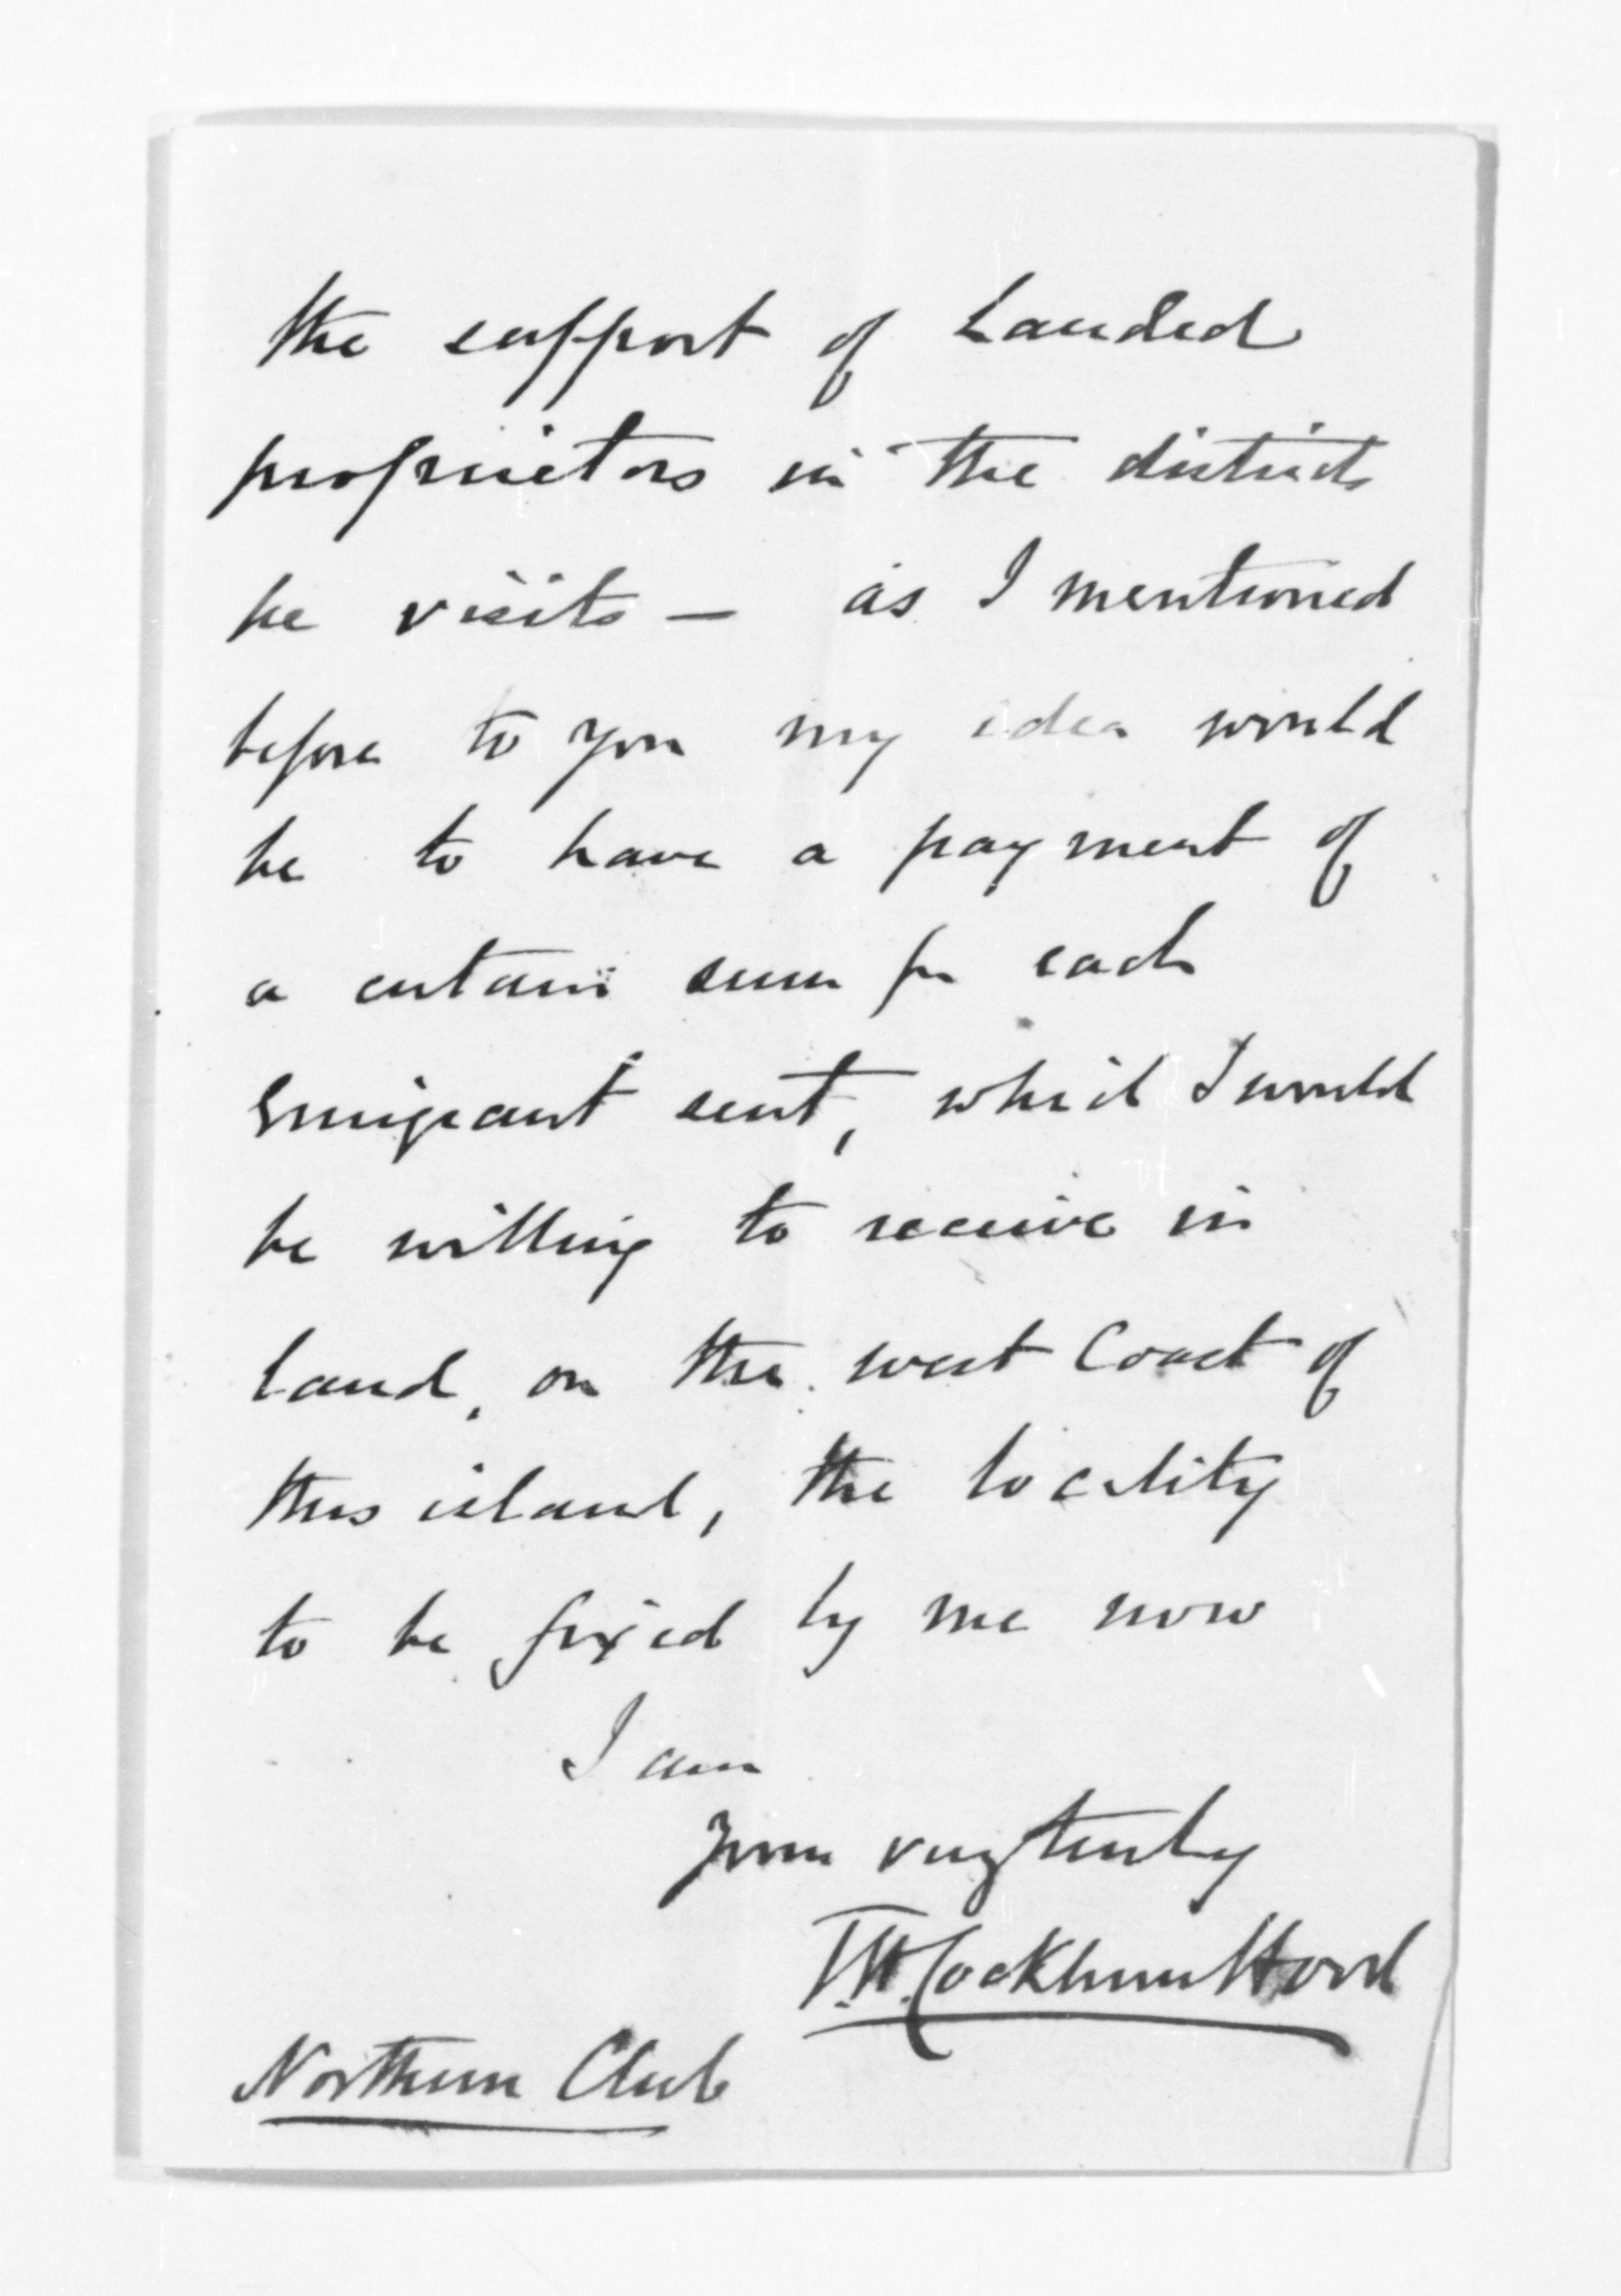 the support of Landed
proprietors in the districts
he visits — as I mentioned
before to you my idea would
be to have a payment of
a certain sum for each
Emigrant sent, which I would
be willing to receive in
land, on the west Coast of
this island, the locality
to be fixed by me now
I am
Yours very truly
T.H. Cockburn Hood
Northern Club